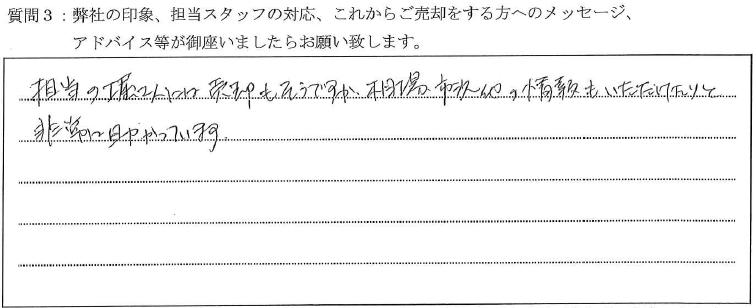 質問３：弊社の印象、担当スタッフの対応、これからご売却をする方へのメッセージ、
アドバイス等が御座いましたらお願い致します。
担当の堀さんには売却もそうですが、相場、市況他の情報もいただけたりと
非常に助かっています。